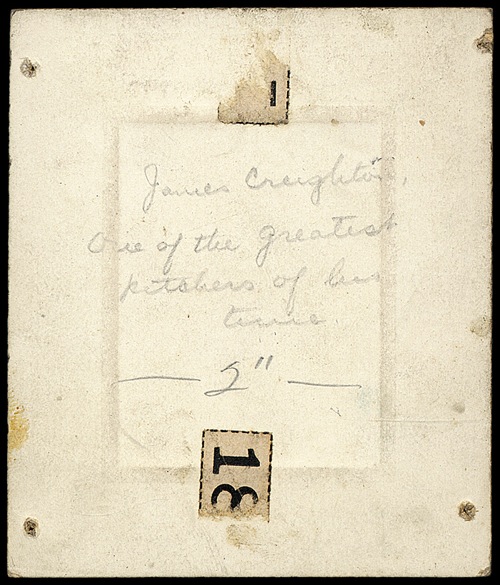 James Creighton,
One of the greatest
pitchers of his
time
— 2" —
18